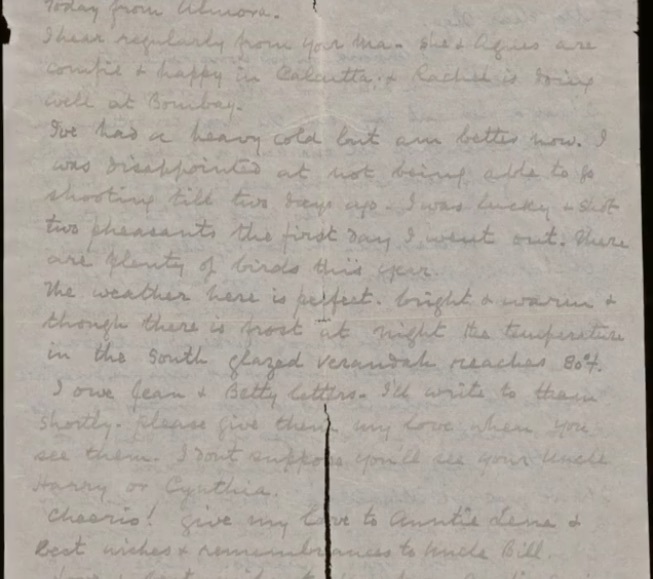 Today from Almora.
I hear regularly from your Ma - She & Agnes are
comfie & happy in Calcutta. & Rachel is doing
well at Bombay.
I've had a heavy cold but am better now. I
was disappointed at not being able to go
shooting till two days ago. I was lucky & shot
two pheasants the first day I went out. There
are plenty of birds this year.
The weather here is perfect. bright & warm &
though there is frost at night the temperature
in the South glazed verandah reaches 80°F.
I owe Jean & Betty letters. I'll write to them
shortly. please give them my love when you
see them. I dont suppose you'll see your Uncle
Harry or Cynthia.
Cheerio! give my love to Auntie Lena &
Best wishes & remembrances to Uncle Bill.